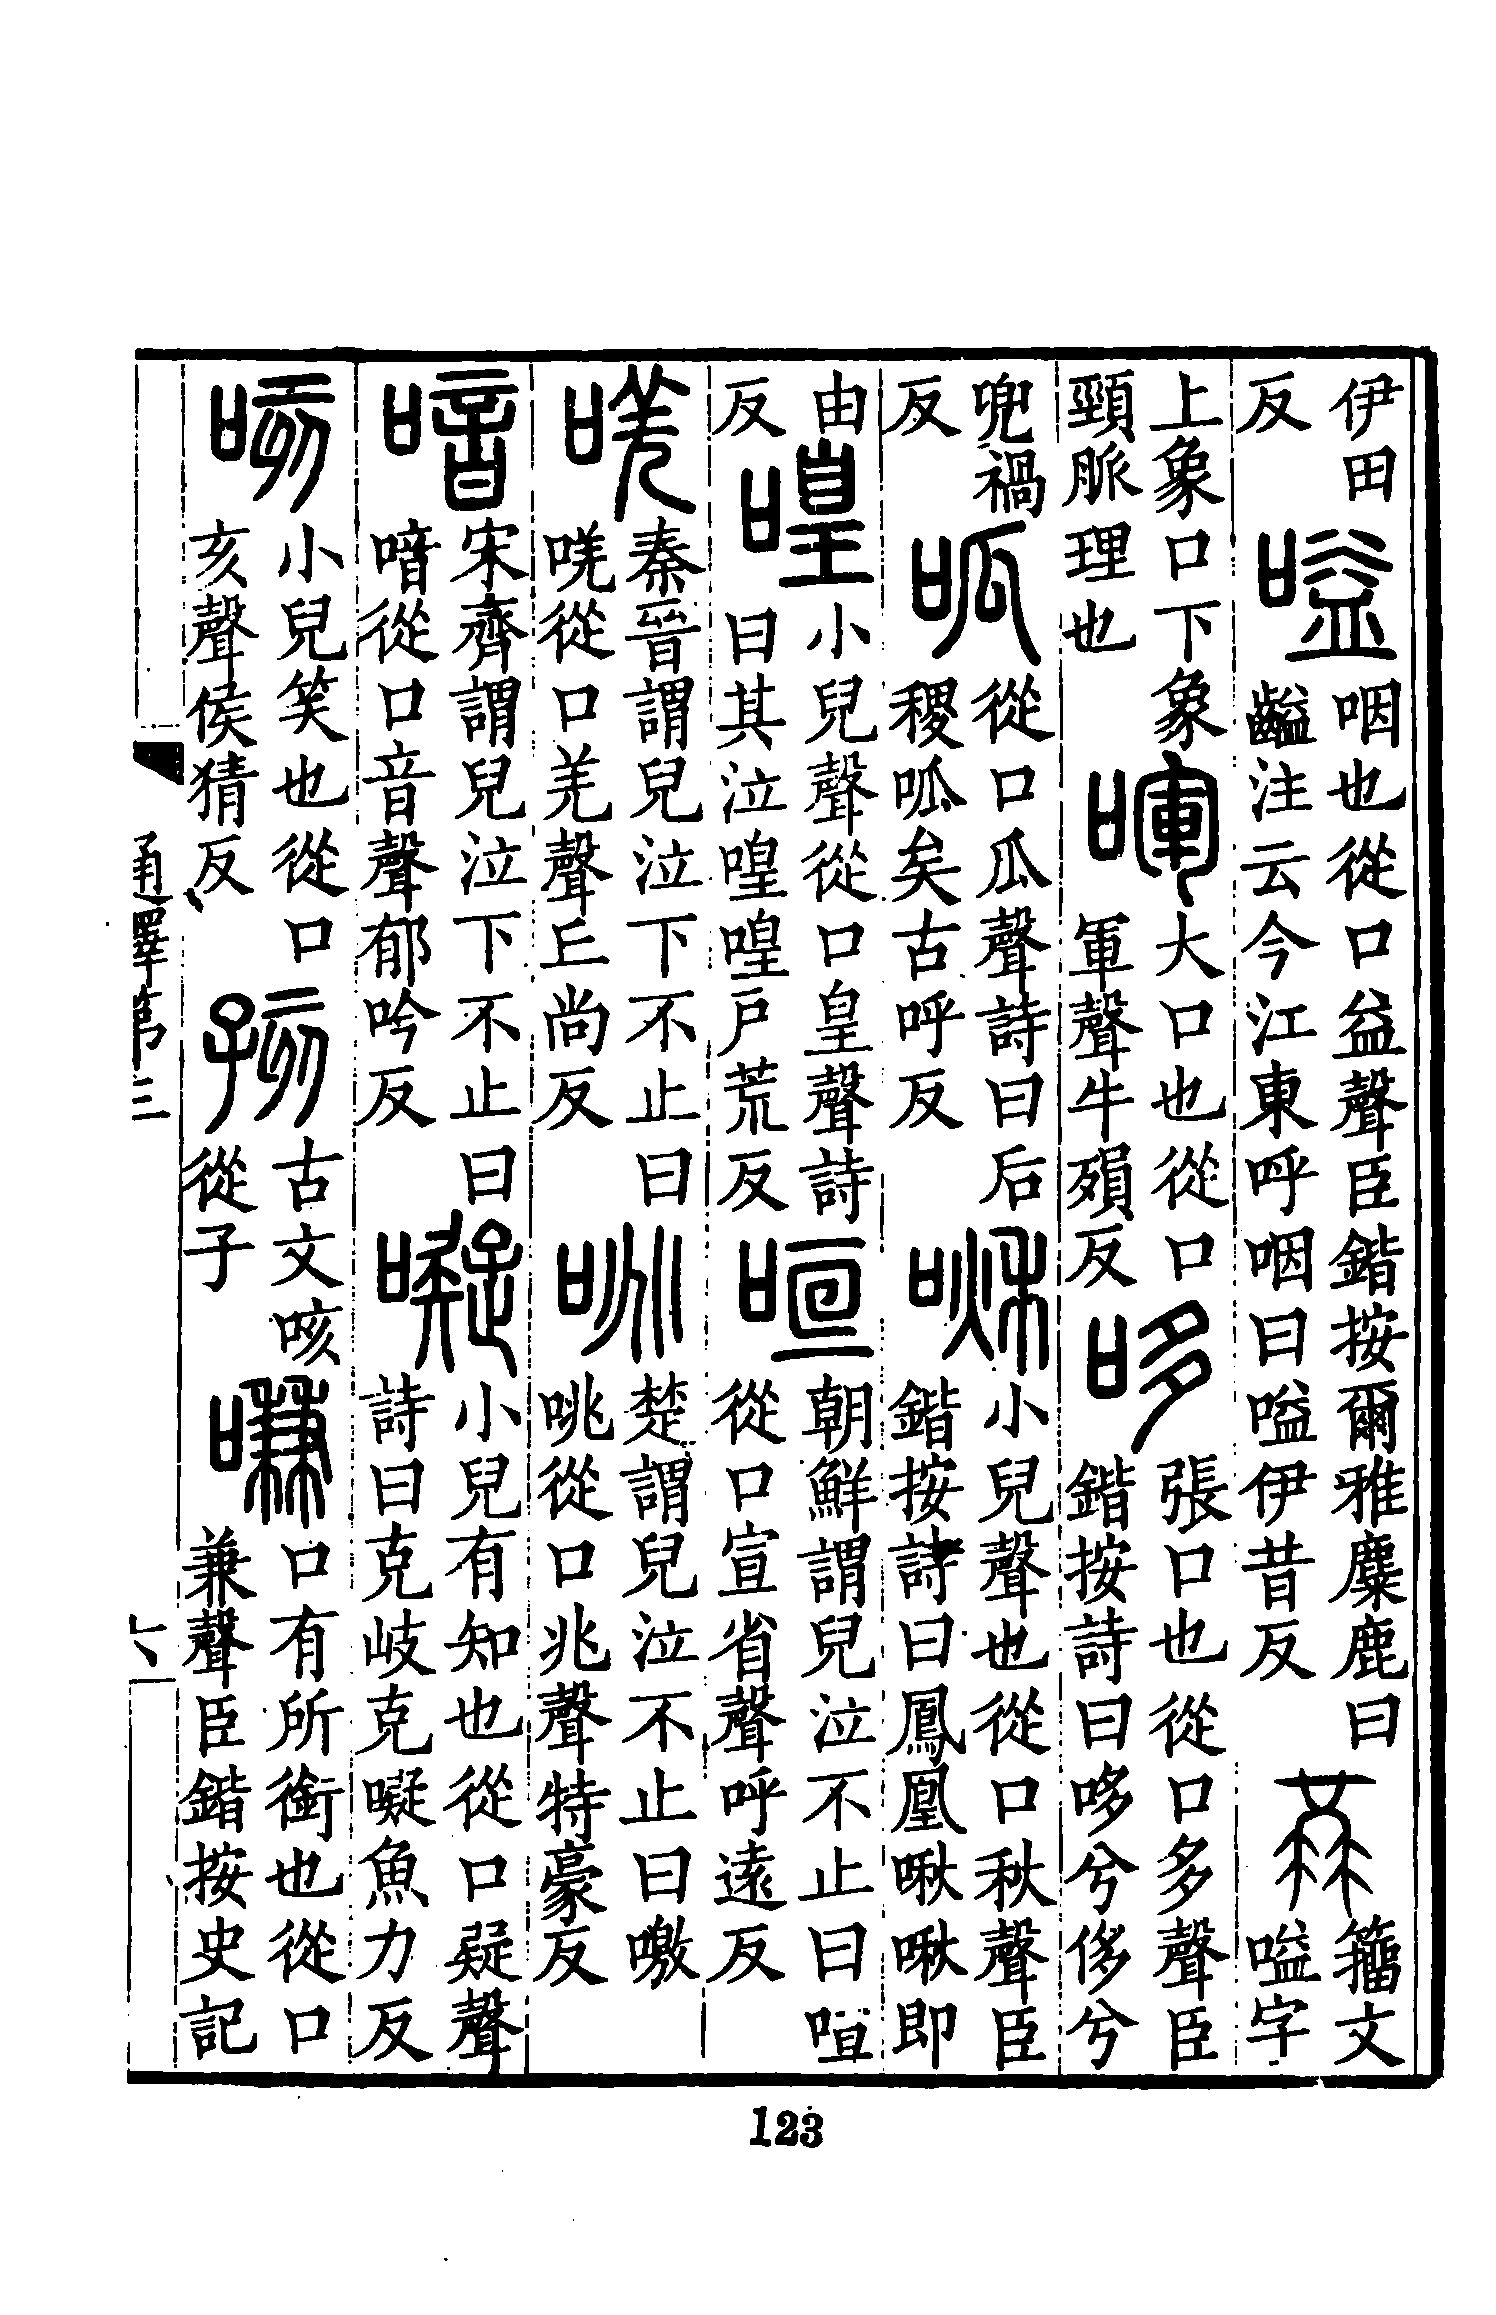 伊田反
嗌
咽也從口益聲臣鍇按爾雅麋鹿曰齸注云今江東呼咽曰嗌伊昔反
籀文嗌字上象口下象頸脈理也
喗
大口也從口軍聲牛殞反
哆
張口也從口多聲臣鍇按詩曰哆兮侈兮兜禍反
呱
從口瓜聲詩曰后稷呱矣古呼反
啾
小兒聲也從口秋聲臣鍇按詩曰鳳凰啾啾即由反
喤
小兒聲從口皇聲詩曰其泣喤喤戶荒反
咺
朝鮮謂兒泣不止曰咺從口宣省聲呼遠反
唴
秦晉謂兒泣下不止曰唴從口羌聲丘尚反
咷
楚謂兒泣不止曰噭咷從口兆聲特豪反
喑
宋齊謂兒泣下不止曰喑從口音聲郁吟反
㘈
小兒有知也從口疑聲詩曰克岐克㘈魚力反
咳
小兒笑也從口亥聲侯猜反
孩
古文咳從子
嗛
口有所銜也從口兼聲臣鍇按史記
通釋第三
六
123